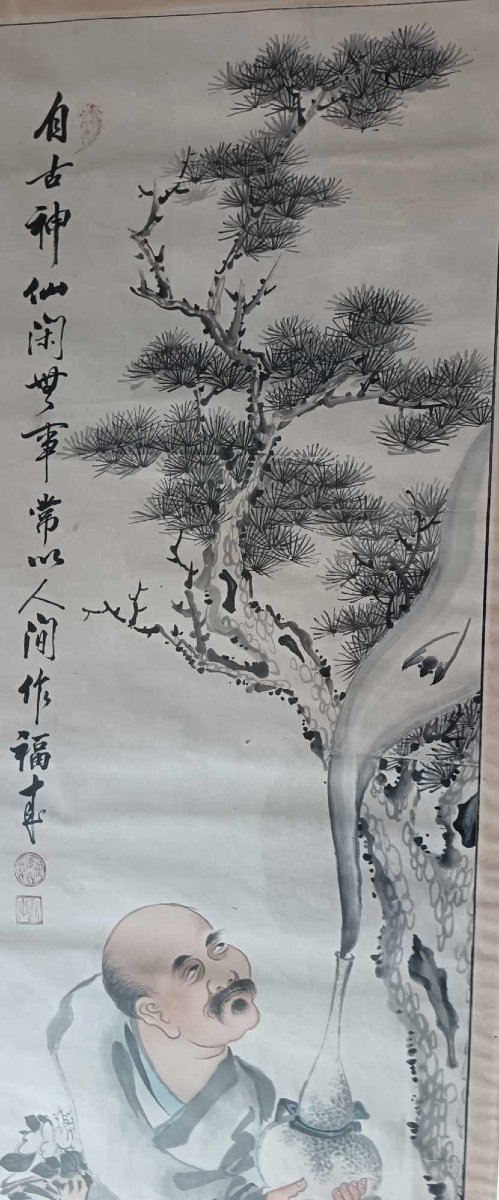 自古神仙闲無事常以人间作福来